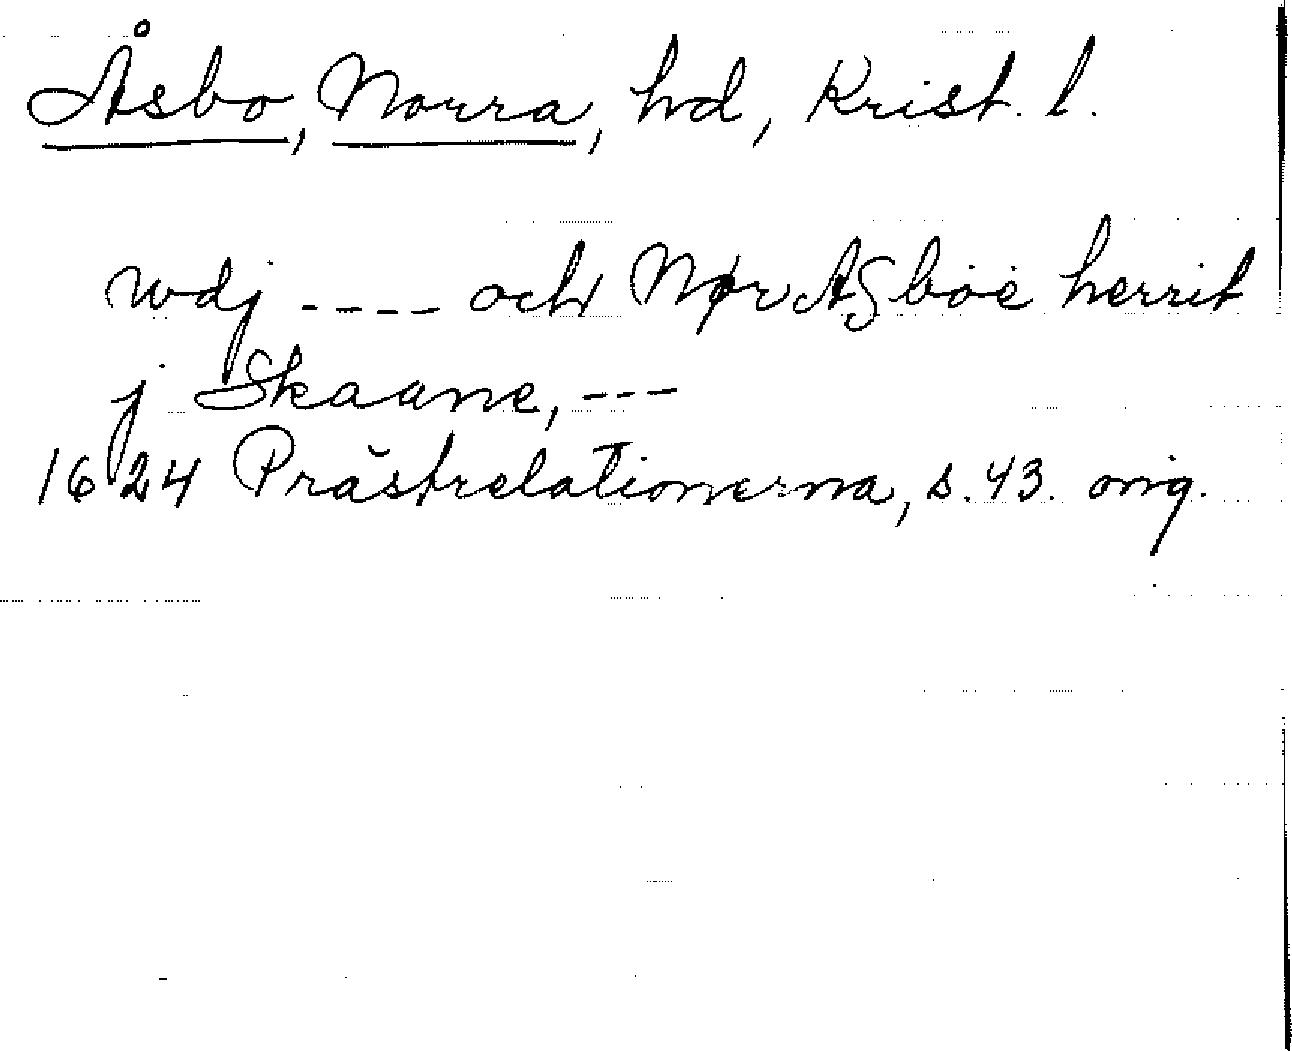 Åsbo, Norra, hd, Krist. l.
wdj ---- och Nør ASböe herrit
j Skaane, ---
1624 Prästrelationerna, s. 43. orig.